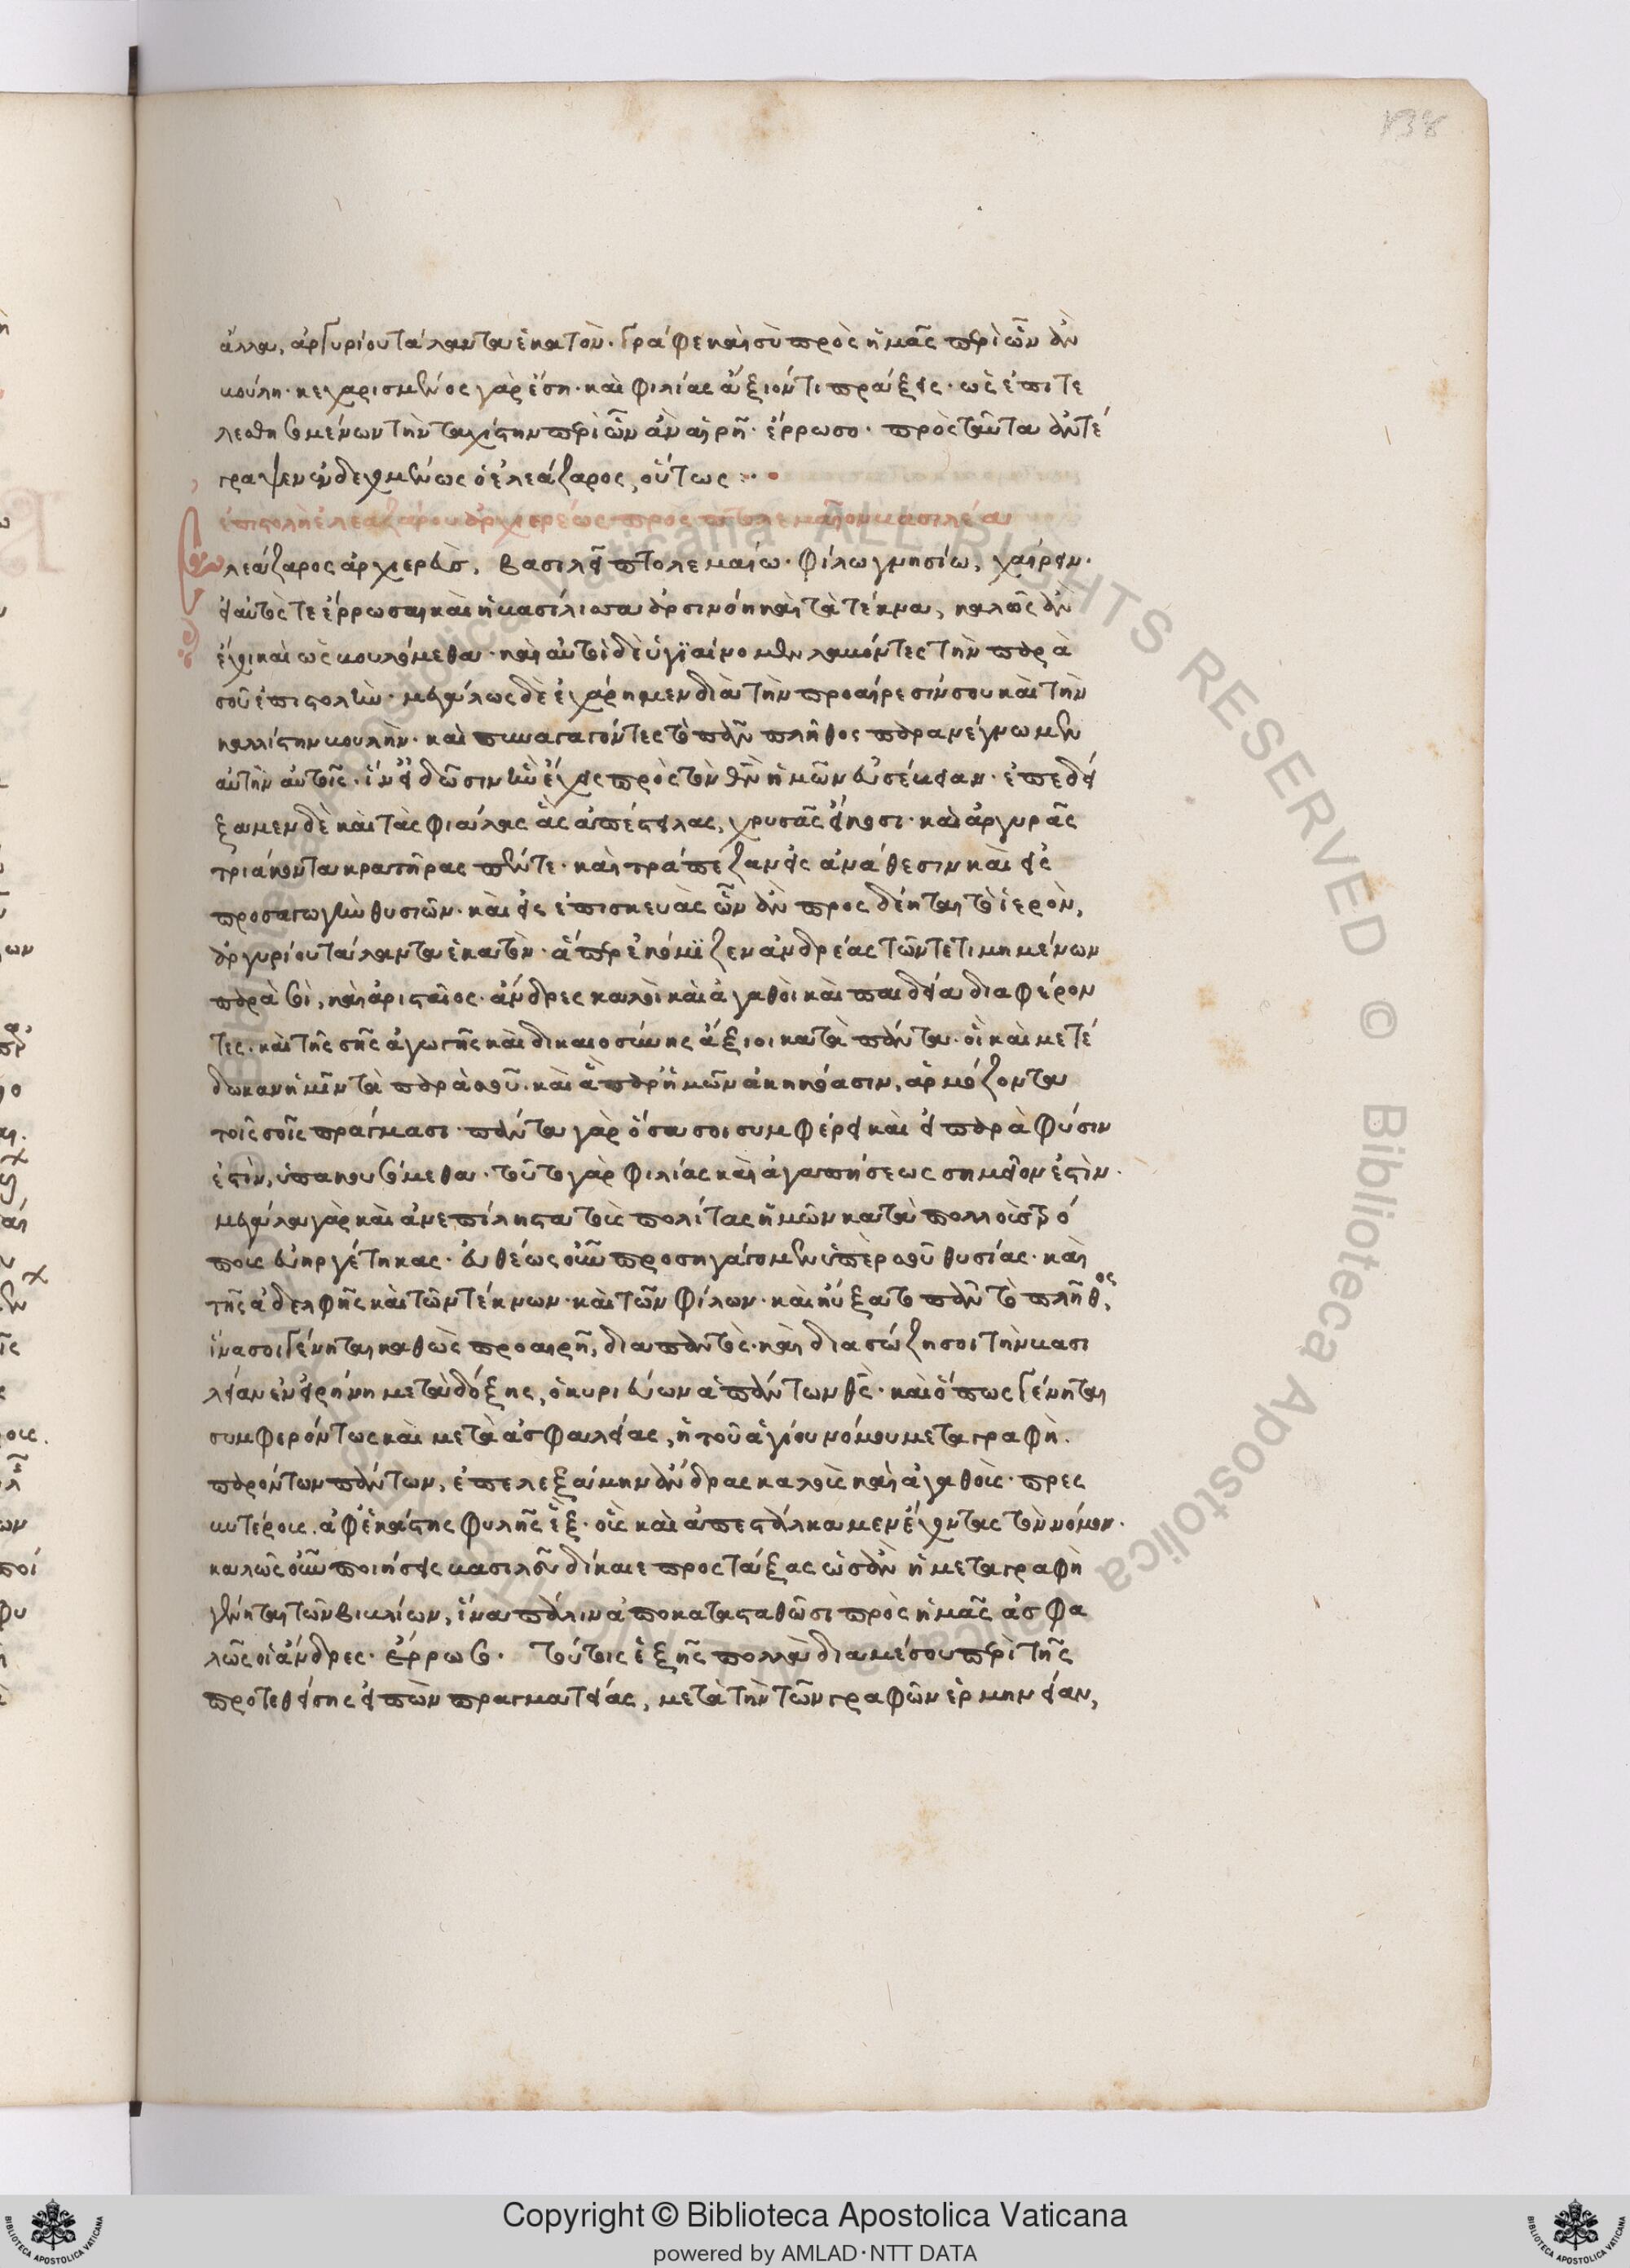 138
ἄλλα, ἀργυρίου τάλαντα ἑκατόν. γράφε καὶ σὺ πρὸς ἡμᾶς περὶ ὧν ἂν
βούλη· κεχαρισμένος γὰρ ἔση· καὶ φιλίας ἄξιόν τι πράξεις· ὡς ἐπιτε
λεσθησομένων τὴν ταχίστην περὶ ὧν ἂν αἱρῇ· ἔρρωσο· πρὸς ταῦτα ἀντέ
γραψεν ἐνδεχομένως ὁ ἐλεάζαρος, οὕτως :·
ἐπιστολὴ ἐλεαζάρου ἀρχιερέως πρὸς πτολεμαῖον βασιλέα
Ἐλεάζαρος ἀρχιερεὺς, βασιλεῖ πτολεμαίω· φίλω γνησίω, χαίρειν.
εἰ αὐτός τε ἔρρωσαι καὶ ἡ βασίλισσα ἀρσινόη καὶ τὰ τέκνα, καλῶς ἂν
ἔχοι καὶ ὡς βουλόμεθα· καὶ αὐτοὶ δὲ ὑγϊαίνομεν λαβόντες τὴν παρὰ
σοῦ ἐπιστολὴν· μεγάλως δὲ ἐχάρημεν διὰ τὴν προαίρεσίν σου καὶ τὴν
καλλίστην βουλὴν· καὶ συναγαγόντες τὸ πᾶν πλῆθος παρανέγνωμεν
αὐτὴν αὐτοῖς· ἵν' εἰδῶσιν ἣν ἔχεις πρὸς τὸν θν ἡμῶν εὐσέβειαν· ἐπεδεί
ξαμεν δὲ καὶ τὰς φιάλας ἃς ἀπέστειλας, χρυσᾶς εἴκοσι· καὶ ἀργυρᾶς
τριάκοντα κρατῆρας πέντε· καὶ τράπεζαν εἰς ἀνάθεσιν καὶ εἰς
προσαγωγὴν θυσιῶν· καὶ εἰς ἐπισκευὰς ὧν ἂν προσδέηται τὸ ἱερὸν,
ἀργυρίου τάλαντα ἑκατὸν· ἅπερ ἐκόμϊζεν ἀνδρέας τῶν τετιμημένων
παρὰ σοὶ, καὶ ἀρισταῖος· ἄνδρες καλοὶ καὶ ἀγαθοὶ καὶ παιδεία διαφέρον
τες· καὶ τῆς σῆς ἀγωγῆς καὶ δικαιοσύνης ἄξιοι κατὰ πάντα· οἳ καὶ μετέ
δωκαν ἡμῖν τὰ παρὰ σοῦ· καὶ ἃ παρ' ἡμῶν ἀκηκόασιν, ἁρμόζοντα
τοῖς σοῖς πράγμασι· πάντα γὰρ ὅσα σοι συμφέρει καὶ εἰ παρὰ φύσιν
ἐστὶν, ὑπακουσόμεθα· τοῦτο γὰρ φιλίας καὶ ἀγαπήσεως σημεῖον ἐστὶν.
μεγάλα γὰρ καὶ ἀνεπίληστα τοὺς πολίτας ἡμῶν κατὰ πολλοὺς τρό
πους εὐηργέτηκας· εὐθέως οὖν προσηγάγομεν ὑπὲρ σοῦ θυσίας· καὶ
τῆς ἀδελφῆς καὶ τῶν τέκνων· καὶ τῶν φίλων· καὶ ηὔξατο πᾶν τὸ πλῆθος,
ἵνα σοι γένηται καθὼς προαιρῇ, διαπαντὸς· καὶ διασώζη σοι τὴν βασι
λείαν ἐν εἰρήνη μετὰ δόξης, ὁ κυριεύων ἁπάντων θς· καὶ ὅπως γένηται
συμφερόντως καὶ μετὰ ἀσφαλείας, ἡ τοῦ ἁγίου νόμου μεταγραφὴ.
παρόντων πάντων, ἐπελεξάμην ἄνδρας καλοὺς καὶ ἀγαθοὺς· πρεσ
βυτέρους· ἀφ' ἑκάστης φυλῆς ἓξ· οἷς καὶ ἀπεστάλκαμεν ἔχοντας τὸν νόμον.
καλῶς οὖν ποιήσεις βασιλεῦ δίκαιε προστάξας ὡς ἂν ἡ μεταγραφὴ
γένηται τῶν βιβλίων, ἵνα πάλιν ἀποκατασταθῶσι πρὸς ἡμᾶς ἀσφα
λῶς οἱ ἄνδρες· ἔρρωσο. τούτοις ἑξῆς πολλὰ διαμέσου περὶ τῆς
προτεθείσης εἰπὼν πραγματείας, μετὰ τὴν τῶν γραφῶν ἑρμηνείαν,
Copyright © Biblioteca Apostolica Vaticana
powered by AMLAD·NTT DATA